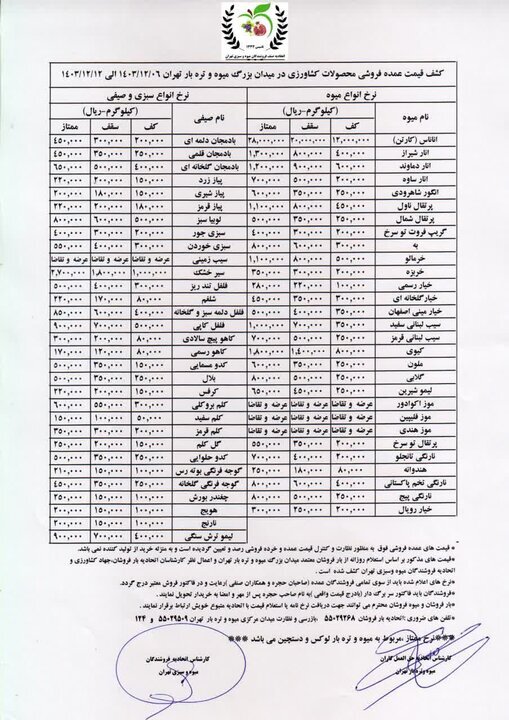 تاسیس ۱۳۲۳
کشف قیمت عمده فروشی محصولات کشاورزی در میدان بزرگ میوه و تره بار تهران ۱۴۰۳/۱۲/۰۶ الی ۱۴۰۳/۱۲/۱۲
نرخ انواع میوه نرخ انواع سبزی و صیفی
نام میوه (کیلوگرم-ریال) نام صیفی (کیلوگرم-ریال)
کف سقف ممتاز کف سقف ممتاز
آناناس (کارتن) ۱۲,۰۰۰,۰۰۰ ۲۰,۰۰۰,۰۰۰ ۲۸,۰۰۰,۰۰۰ بادمجان دلمه ای ۲۰۰,۰۰۰ ۳۰۰,۰۰۰ ۴۵۰,۰۰۰
انار شیراز ۴۰۰,۰۰۰ ۸۰۰,۰۰۰ ۱,۳۰۰,۰۰۰ بادمجان قلمی ۲۵۰,۰۰۰ ۳۵۰,۰۰۰ ۴۵۰,۰۰۰
انار دماوند ۶۰۰,۰۰۰ ۹۰۰,۰۰۰ ۱,۲۰۰,۰۰۰ بادمجان گلخانه ای ۴۰۰,۰۰۰ ۵۰۰,۰۰۰ ۶۵۰,۰۰۰
انار ساوه ۲۰۰,۰۰۰ ۵۰۰,۰۰۰ ۷۰۰,۰۰۰ پیاز زرد ۱۵۰,۰۰۰ ۲۰۰,۰۰۰ ۲۲۰,۰۰۰
انگور شاهرودی ۲۵۰,۰۰۰ ۳۵۰,۰۰۰ ۶۰۰,۰۰۰ پیاز شیری ۱۵۰,۰۰۰ ۱۸۰,۰۰۰ ۲۰۰,۰۰۰
پرتقال ناول ۴۰۰,۰۰۰ ۸۰۰,۰۰۰ ۱,۱۰۰,۰۰۰ پیاز قرمز ۱۵۰,۰۰۰ ۲۰۰,۰۰۰ ۲۲۰,۰۰۰
پرتقال شمال ۲۵۰,۰۰۰ ۳۵۰,۰۰۰ ۵۰۰,۰۰۰ لوبیا سبز ۵۰۰,۰۰۰ ۶۰۰,۰۰۰ ۸۰۰,۰۰۰
گریپ فروت تو سرخ ۲۰۰,۰۰۰ ۳۰۰,۰۰۰ ۴۰۰,۰۰۰ سبزی جور ۲۰۰,۰۰۰ ۳۰۰,۰۰۰ ۴۰۰,۰۰۰
به ۳۰۰,۰۰۰ ۶۰۰,۰۰۰ ۸۰۰,۰۰۰ سبزی خوردن ۳۰۰,۰۰۰ ۴۰۰,۰۰۰ ۵۵۰,۰۰۰
خرمالو ۵۰۰,۰۰۰ ۸۰۰,۰۰۰ ۱,۱۰۰,۰۰۰ سیب زمینی عرضه و تقاضا عرضه و تقاضا عرضه و تقاضا
خربزه ۲۰۰,۰۰۰ ۳۰۰,۰۰۰ ۳۵۰,۰۰۰ سیر خشک ۱,۰۰۰,۰۰۰ ۱,۸۰۰,۰۰۰ ۲,۷۰۰,۰۰۰
خیار رسمی ۱۰۰,۰۰۰ ۲۲۰,۰۰۰ ۲۸۰,۰۰۰ فلفل تند ریز ۳۰۰,۰۰۰ ۴۰۰,۰۰۰ ۵۰۰,۰۰۰
خیارگلخانه ای ۲۵۰,۰۰۰ ۳۵۰,۰۰۰ ۴۵۰,۰۰۰ شلغم ۸۰,۰۰۰ ۱۷۰,۰۰۰ ۲۲۰,۰۰۰
خیار مینی اصفهان ۲۵۰,۰۰۰ ۳۵۰,۰۰۰ ۴۵۰,۰۰۰ فلفل دلمه سبز و گلخانه ۴۰۰,۰۰۰ ۶۰۰,۰۰۰ ۸۵۰,۰۰۰
سیب لبنانی سفید ۳۵۰,۰۰۰ ۷۰۰,۰۰۰ ۱,۰۰۰,۰۰۰ فلفل کاپی ۵۰۰,۰۰۰ ۷۰۰,۰۰۰ ۹۰۰,۰۰۰
سیب لبنانی قرمز ۲۵۰,۰۰۰ ۵۰۰,۰۰۰ ۷۰۰,۰۰۰ کاهو پیچ سالادی ۸۰,۰۰۰ ۲۰۰,۰۰۰ ۳۰۰,۰۰۰
کیوی ۸۰۰,۰۰۰ ۱,۴۰۰,۰۰۰ ۱,۸۰۰,۰۰۰ کاهو رسمی ۸۰,۰۰۰ ۱۲۰,۰۰۰ ۱۷۰,۰۰۰
ملون ۲۵۰,۰۰۰ ۳۵۰,۰۰۰ ۶۰۰,۰۰۰ کدو مسمایی ۱۵۰,۰۰۰ ۳۵۰,۰۰۰ ۵۰۰,۰۰۰
گلابی ۲۵۰,۰۰۰ ۵۰۰,۰۰۰ ۸۰۰,۰۰۰ بلال ۲۵۰,۰۰۰ ۳۵۰,۰۰۰ ۵۰۰,۰۰۰
لیمو شیرین ۲۵۰,۰۰۰ ۴۵۰,۰۰۰ ۶۵۰,۰۰۰ کرفس ۱۵۰,۰۰۰ ۲۰۰,۰۰۰ ۲۵۰,۰۰۰
موز اکوادور عرضه و تقاضا عرضه و تقاضا عرضه و تقاضا کلم بروکلی ۳۰۰,۰۰۰ ۵۵۰,۰۰۰ ۶۰۰,۰۰۰
موز فلیپین عرضه و تقاضا عرضه و تقاضا عرضه و تقاضا کلم سفید ۵۰,۰۰۰ ۱۰۰,۰۰۰ ۱۵۰,۰۰۰
موز هندی عرضه و تقاضا عرضه و تقاضا عرضه و تقاضا کلم قرمز ۲۰۰,۰۰۰ ۳۰۰,۰۰۰ ۳۵۰,۰۰۰
پرتقال تو سرخ ۲۰۰,۰۰۰ ۳۵۰,۰۰۰ ۵۵۰,۰۰۰ گل کلم ۱۵۰,۰۰۰ ۲۰۰,۰۰۰ ۲۵۰,۰۰۰
نارنگی تانجلو ۲۰۰,۰۰۰ ۴۰۰,۰۰۰ ۷۰۰,۰۰۰ کدو حلوایی ۲۵۰,۰۰۰ ۳۵۰,۰۰۰ ۵۰۰,۰۰۰
هندوانه ۸۰,۰۰۰ ۱۸۰,۰۰۰ ۲۵۰,۰۰۰ گوجه فرنگی بوته رس ۱۰۰,۰۰۰ ۱۵۰,۰۰۰ ۲۱۰,۰۰۰
نارنگی تخم پاکستانی ۴۰۰,۰۰۰ ۶۰۰,۰۰۰ ۸۰۰,۰۰۰ گوجه فرنگی گلخانه ۲۵۰,۰۰۰ ۳۵۰,۰۰۰ ۴۵۰,۰۰۰
نارنگی پیج ۲۵۰,۰۰۰ ۵۰۰,۰۰۰ ۸۰۰,۰۰۰ چغندر بورش ۱۰۰,۰۰۰ ۱۵۰,۰۰۰ ۲۵۰,۰۰۰
خیار رویال ۲۰۰,۰۰۰ ۲۵۰,۰۰۰ ۳۰۰,۰۰۰ هویج ۱۰۰,۰۰۰ ۱۵۰,۰۰۰ ۲۰۰,۰۰۰
نارنج ۱۰۰,۰۰۰ ۱۵۰,۰۰۰ ۲۰۰,۰۰۰
لیمو ترش سنگی ۴۰۰,۰۰۰ ۷۰۰,۰۰۰ ۹۰۰,۰۰۰
* قیمت های عمده فروشی فوق به منظور نظارت و کنترل قیمت عمده و خرده فروشی رصد و تعیین گردیده است و به منزله خرید از تولید کننده نمی باشد.
*قیمت های مذکور بر اساس استعلام روزانه از بار فروشان معتمد میدان بزرگ میوه و تره بار تهران و اعمال نظر کارشناسان اتحادیه بار فروشان،جهاد کشاورزی و اتحادیه فروشندگان میوه وسبزی تهران کشف شده است .
*نرخ های اعلام شده باید از سوی تمامی فروشندگان عمده (صاحبان حجره و همکاران صنفی )رعایت و در فاکتور فروش معتبر درج گردد.
*فروشندگان باید فاکتور سر برگ دار (بادرج قیمت واقعی )به نام صاحبی حجره پس از مهر و امضا به خریدار تحویل نمایند.
*بار فروشان و میوه فروشان محترم می توانند جهت دریافت نرخ نامه یا استعلام قیمت با اتحادیه متبوع خویش ارتباط برقرار نمایند .
*تلفن های ضروری :اتحادیه بار فروشان ۵۵۰۲۹۲۶۸ ،بازرسی و نظارت میدان مرکزی میوه و تره بار تهران ۵۵۰۲۹۵۰۹ و ۱۲۴
***نرخ ممتاز ،مربوط به میوه و تره بار لوکس و دستچین می باشد ***
کارشناس اتحادیه حق العمل کاران
میوه و تره بار تهران
کارشناس اتحادیه فروشندگان
میوه و سبزی تهران